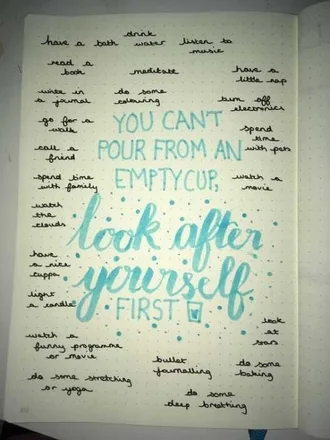 have a bath
drink
water
listen to
music
read a
book
meditate
have a
little nap
write in
a journal
do some
colouring
turn off
electronics
go for a
walk
YOU CAN'T
POUR FROM AN
EMPTY CUP,
look after
yourself
FIRST
spend
time
with pets
call a
friend
spend time
with family
watch a
movie
watch
the
clouds
have
a nice
cuppa
light
a candle
look
at
stars
watch a
funny programme
or movie
bullet
journalling
do some
baking
do some stretching
or yoga
do some
deep breathing